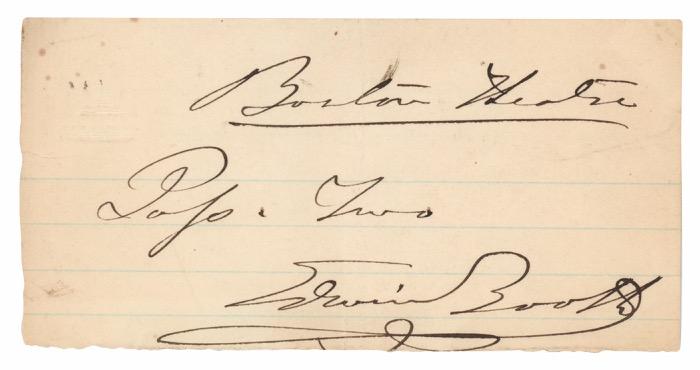 Boston Theatre
Pass. Two
Edwin Booth